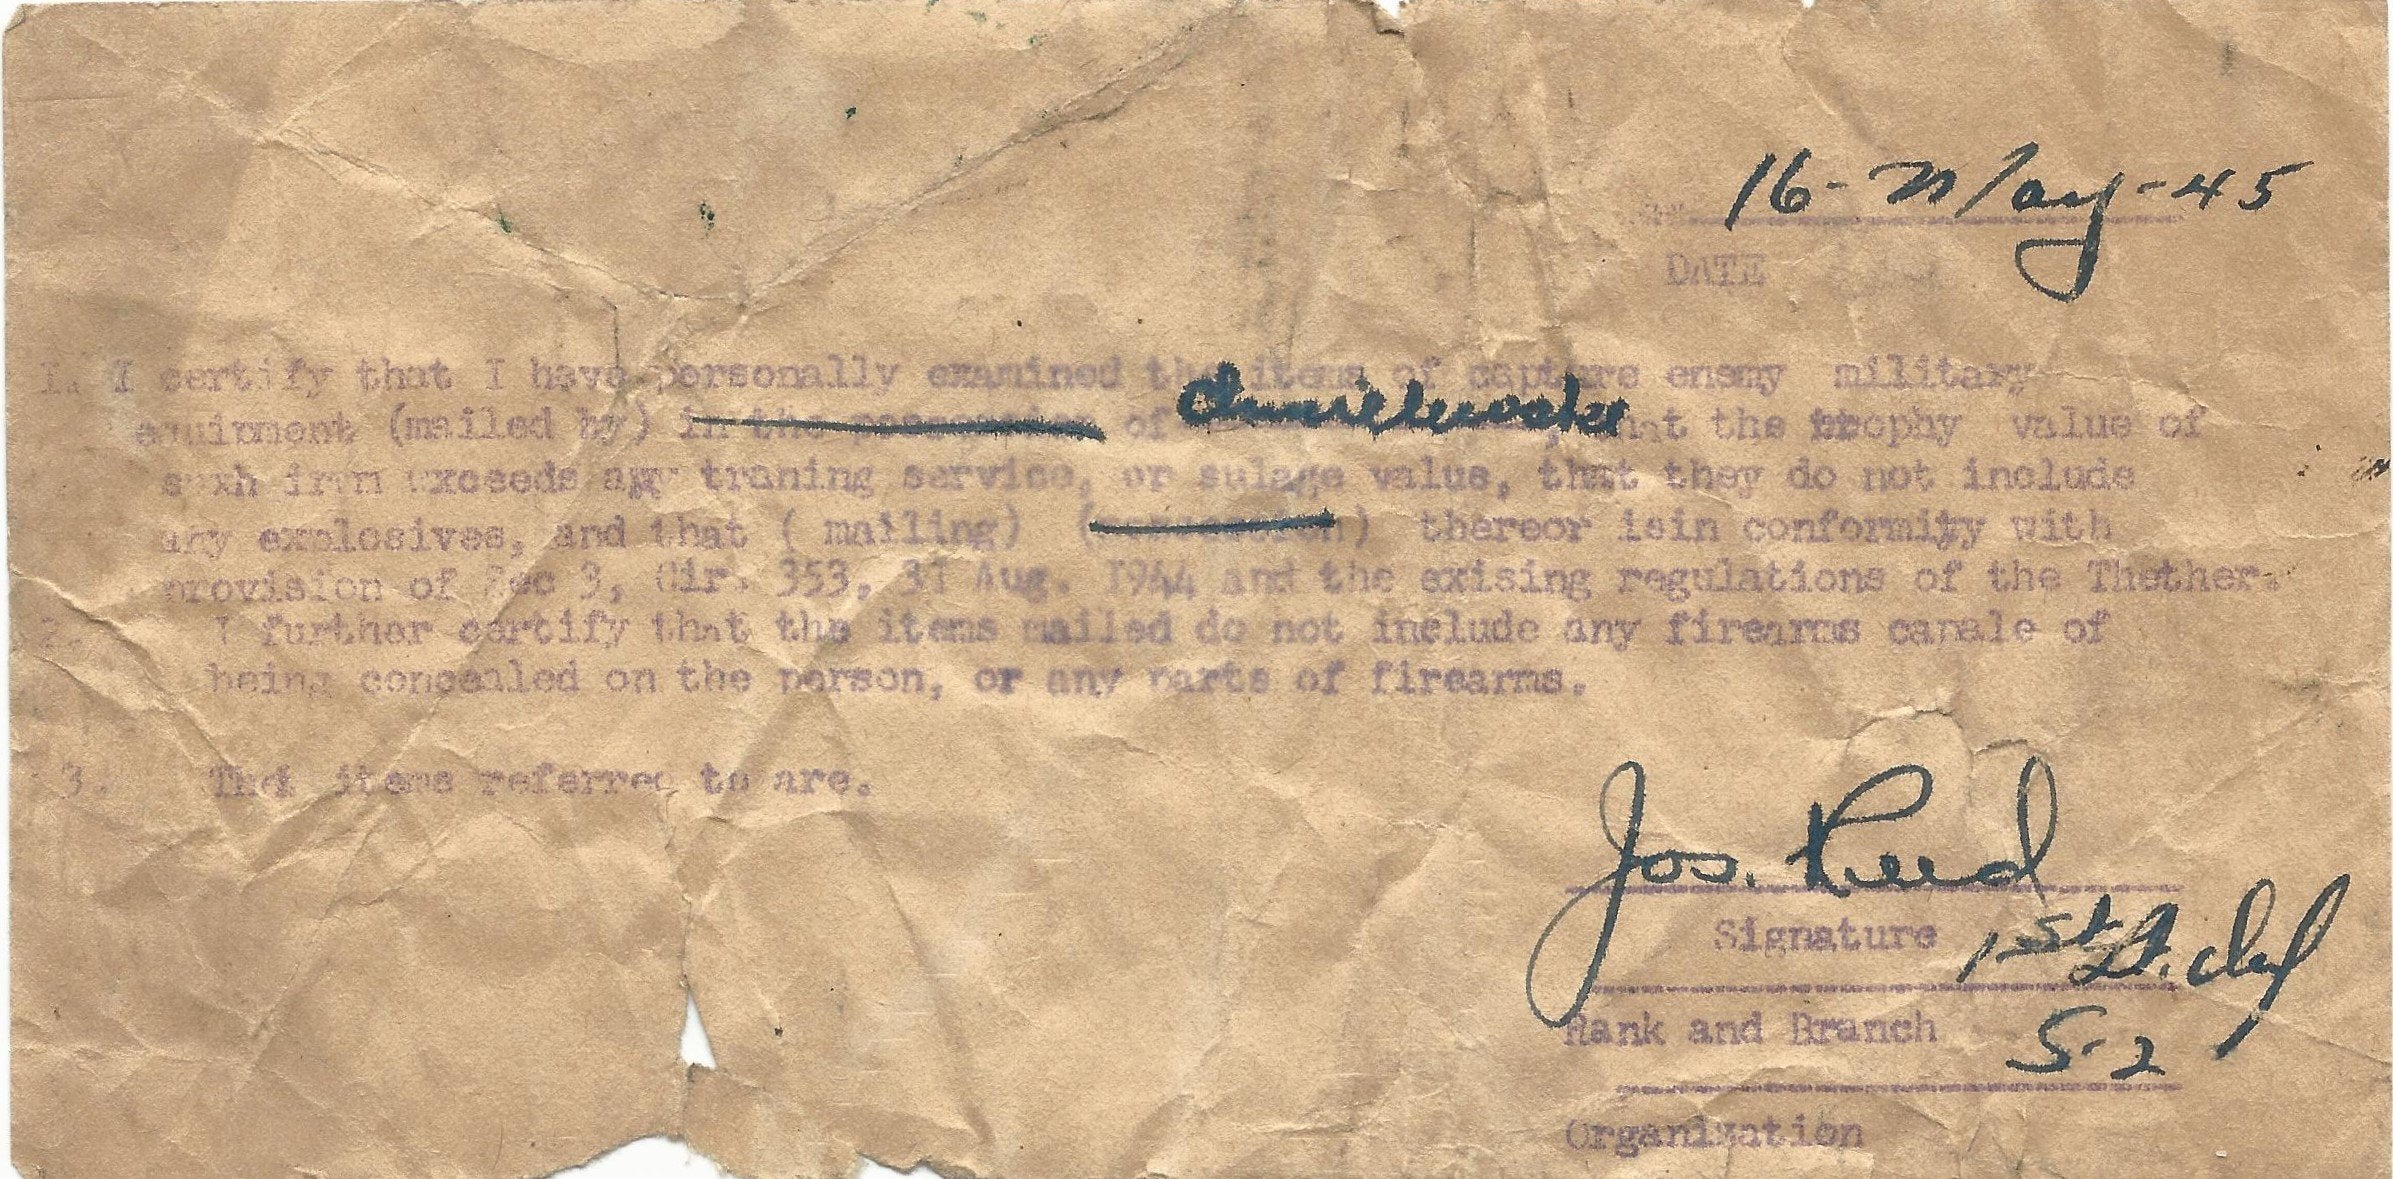 16-May-45
DATE
1. I certify that I have personally examined the items of capture enemy military
equipment (mailed by) in the possession of , that the trophy value of
such exceeds any traning service, or sulage value, that they do not include
any explosives, and that ( mailing) ( ) thereor isin conformity with
provision of Sec 3, Cir. 353, 31 Aug. 1944 and the exising regulations of the Thether.
2. I further certify that the items mailed do not include any firearms capale of
being concealed on the person, or any parts of firearms.
3. The items referred to are.
Jos. Reed
Signature
1st Lt.
Rank and Branch
S-2
Organization